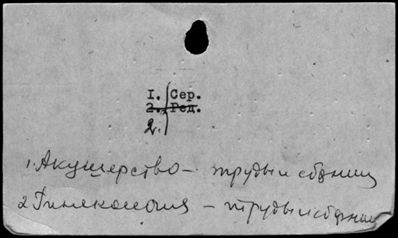 I. Сер.
2. Ред.
2.
1. Акушерство – труды и сборники
2. Гинекология – труды и сборники